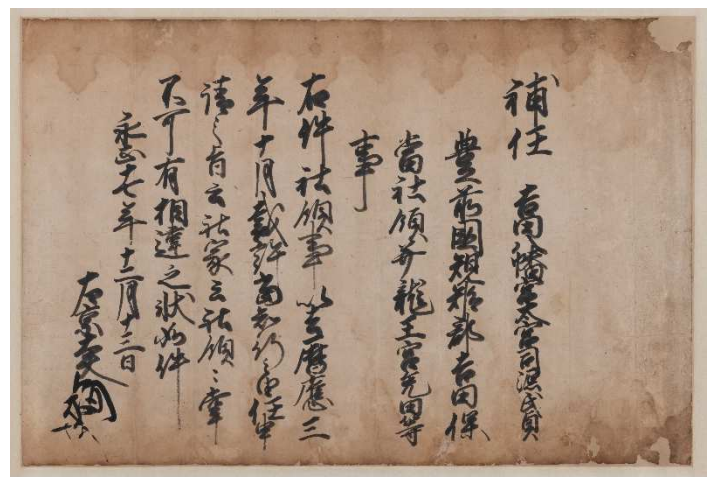 補任 吉田八幡宮大宮司源
豊前國規矩郡吉田保
當社領并龍王宮免田等
事
右件社領事以去暦應三
年十月裁許知行任申
請之旨云社家云社領々掌
不可有相違之状如件
永正十七年十二月十三日
左京大夫